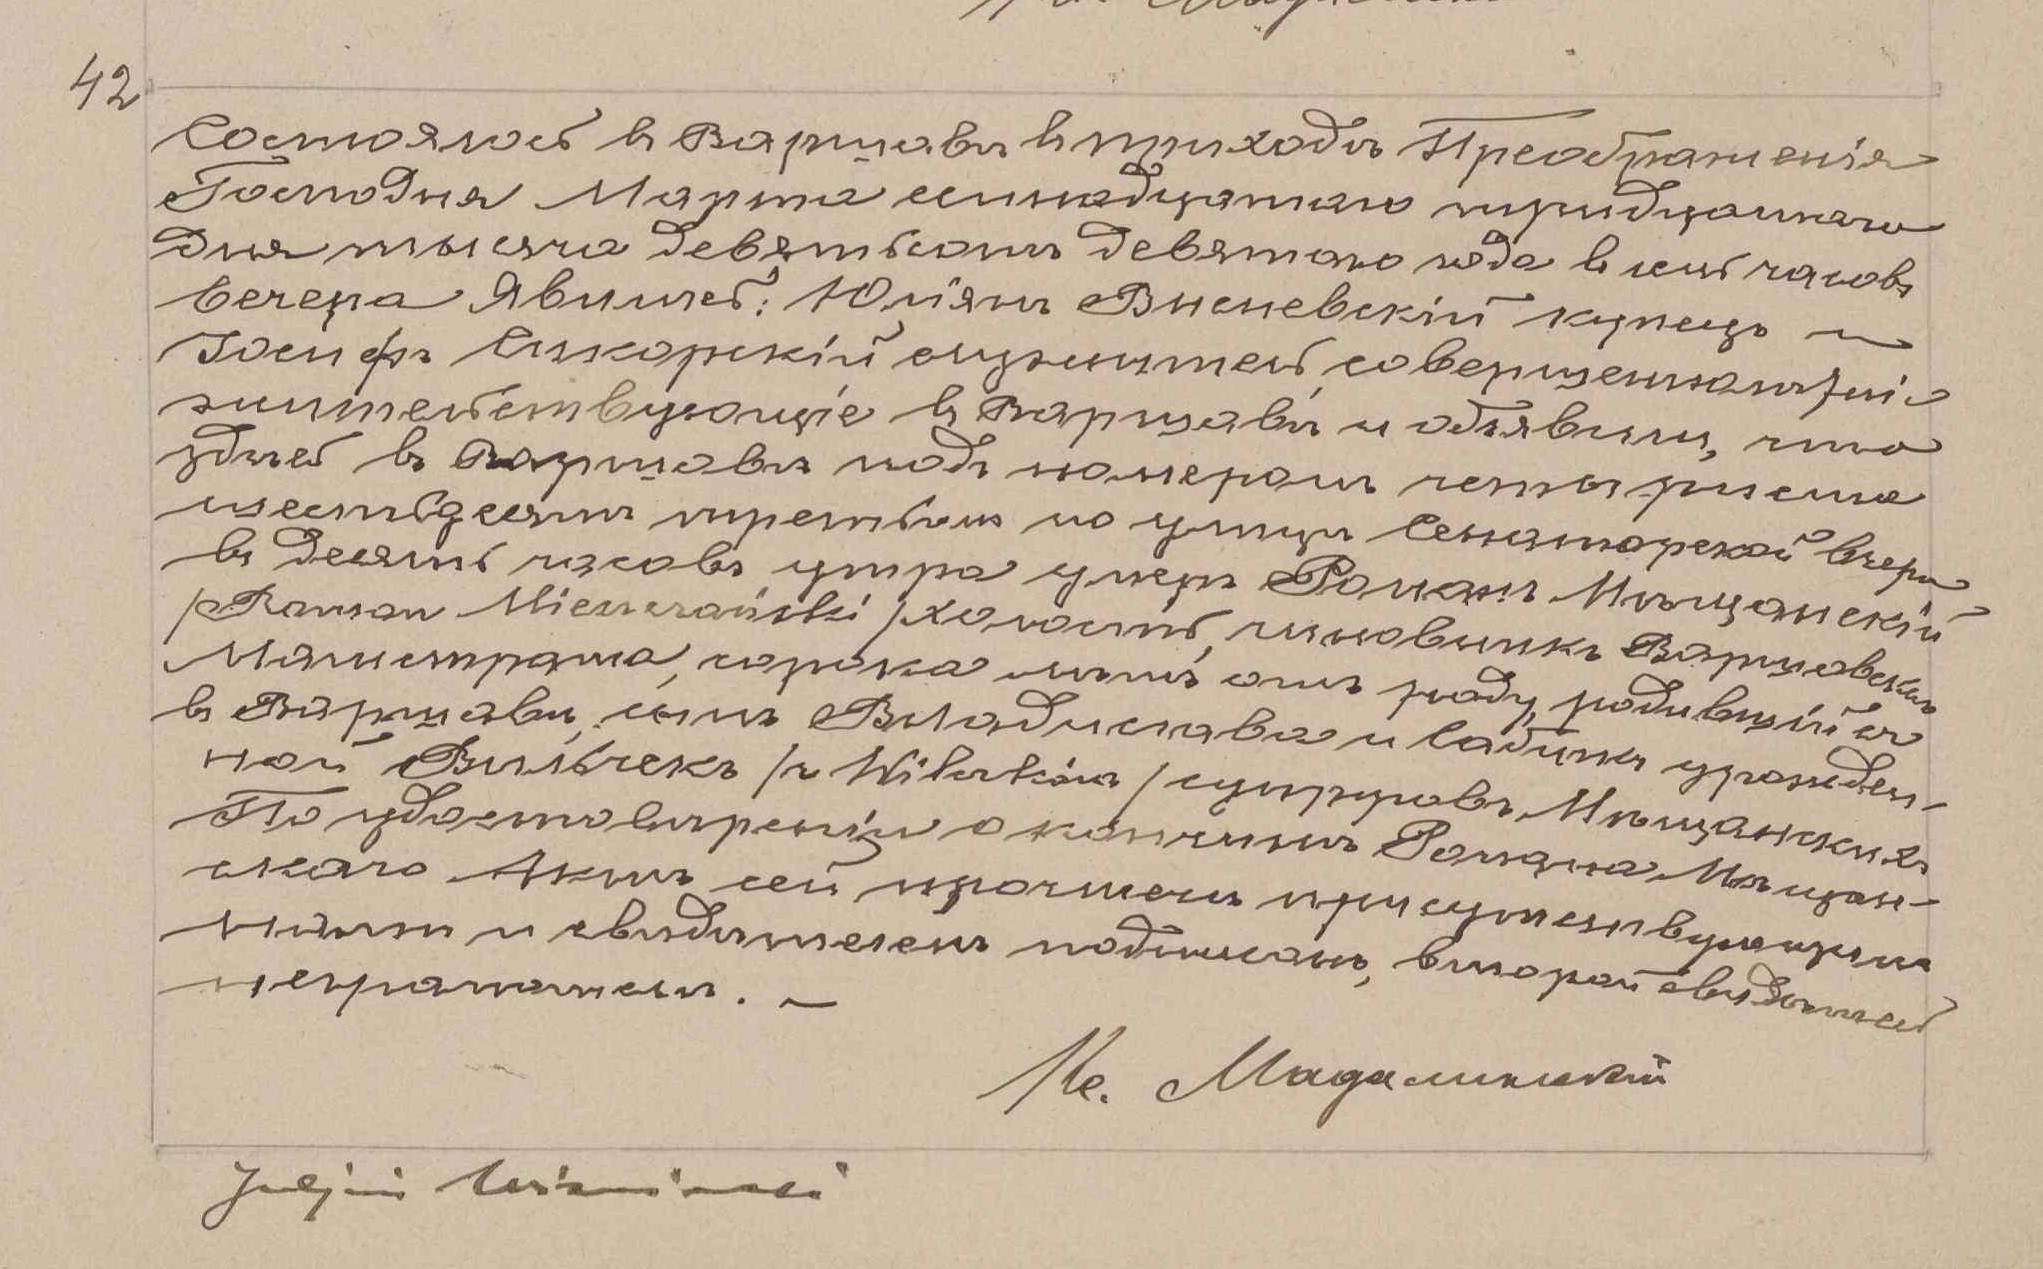 42
Состоялось въ Варшавѣ въ приходѣ Преображенія
Господня Марта семнадцатаго тридцатаго
дня тысяча девятьсотъ девятаго года въ семь часовъ
вечера Явились: Юліянъ Висневскій купецъ и
Іосифъ Сикорскій служитель, совершеннолѣтніе
жительствующіе въ Варшавѣ и объявили, что
здѣсь въ Варшавѣ подъ номеромъ четыриста
шестьдесятъ третьимъ по улицѣ Сенаторской вчера
въ десять часовъ утра умеръ Романъ Мѣщанскій
/Roman Mieszczański/ холостъ, чиновникъ Варшавскаго
Магистрата, сорока лѣтъ отъ роду, родившійся
въ Варшавѣ, сынъ Владислава и Сабины урожден-
ной Вильчекъ /z Wilczków/ супруговъ Мѣщанскихъ
По удостовѣреніи о кончинѣ Романа Мѣщан-
скаго Актъ сей прочтенъ присутствующимъ
нами и свидѣтелемъ подписанъ, второй свидѣтель
неграмотенъ. –
Кс. Мадалинскій
Juljan Wiśniewski